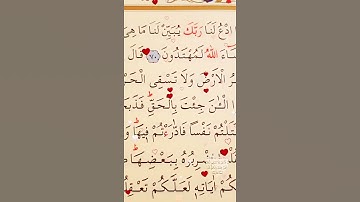 ادْعُ لَنَا رَبَّكَ يُبَيِّنْ لَنَا مَا هِيَ
ـَٓاءَ اللّٰهُ لَمُهْتَدُونَ ﴿٧٠﴾ قَالَ
ـرُ الْاَرْضَ وَلَا تَسْقِى الْحَـ
ـا الْـٰٔنَ جِئْتَ بِالْحَقِّ فَذَبَحـ
ـتَلْتُمْ نَفْسًا فَادّٰرَءْتُمْ فِيهَا وَ
ـرِبُوهُ بِبَعْضِهَا
ـكُمْ اٰيَاتِهٖ لَعَلَّكُمْ تَعْقِلـ